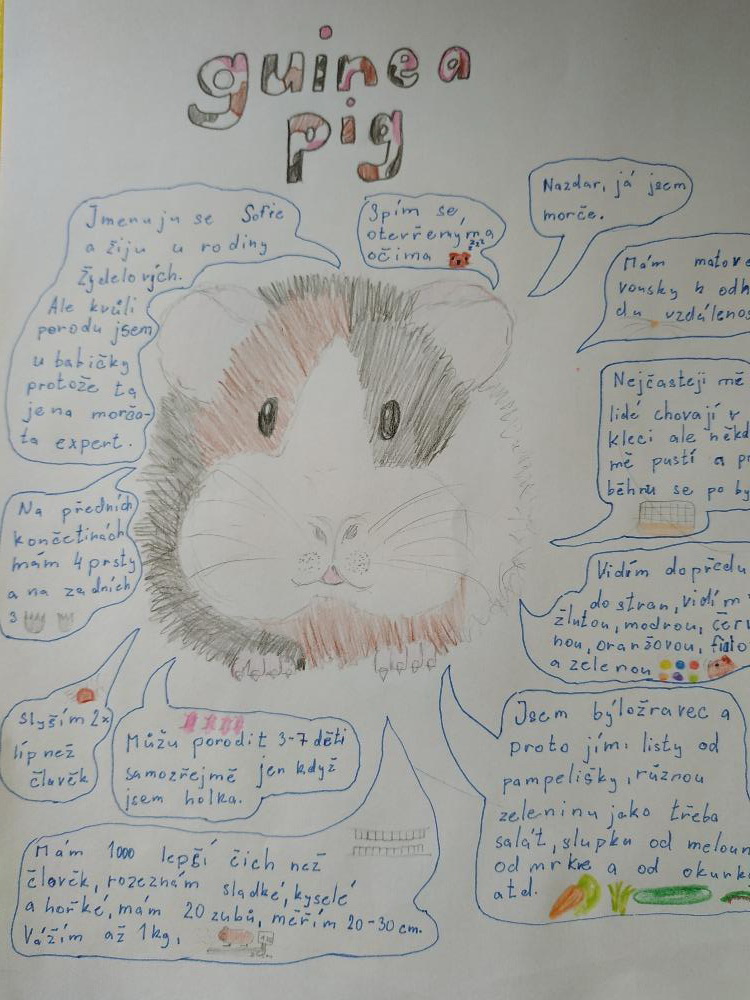 guinea
pig
Jmenuju se Sofie
a žiju u rodiny
Žydelových.
Ale kvůli
porodu jsem
u babičky
protože ta
je na morča-
ta expert.
Spím se
otevřenýma
očima
zzz
Nazdar, já jsem
morče.
Mám
vousky k
du
Nejčastěji mě
lidé chovají v
kleci ale
mě pustí a
běhnu se po
Na předních
končetinách
mám 4 prsty
a na zadních
3
Vidím dopředu
do stran, vidím
žlutou, modrou,
nou, oranžovou,
a zelenou
Slyším 2x
líp než
člověk
Můžu porodit 3-7 dětí
samozřejmě jen když
jsem holka.
Jsem býložravec a
proto jím: listy od
pampelišky, různou
zeleninu jako třeba
salát, slupku od
od mrkve a od
atd.
Mám 1000 lepší čich než
člověk, rozeznám sladké, kyselé
a hořké, mám 20 zubů, měřím 20-30 cm.
Vážím až 1kg.